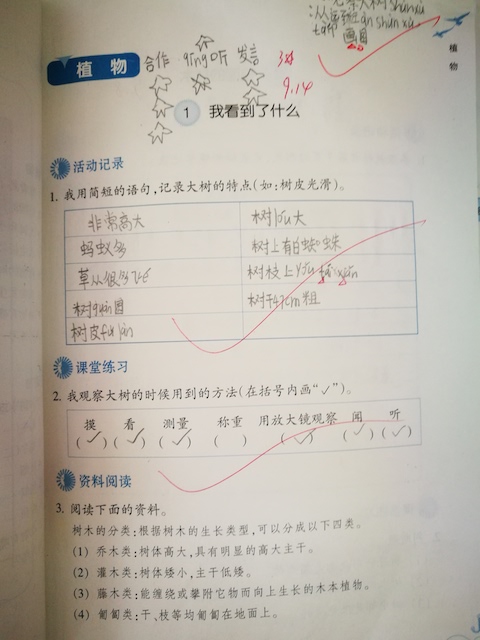 植物 合作 qīng听 发言
9.14
1 我看到了什么
植物
活动记录
1. 我用简短的语句,记录大树的特点(如:树皮光滑)。
非常高大
蚂蚁多
树上有白蜘蛛
树枝上yǒu
树皮
课堂练习
2. 我观察大树的时候用到的方法(在括号内画“✓”)。
摸 看 测量 称重 用放大镜观察 闻 听
(✓) (✓) (✓) ( ) (✓) (✓) (✓)
资料阅读
3. 阅读下面的资料。
树木的分类:根据树木的生长类型,可以分成以下四类。
(1) 乔木类:树体高大,具有明显的高大主干。
(2) 灌木类:树体矮小,主干低矮。
(3) 藤木类:能缠绕或攀附它物而向上生长的木本植物。
(4) 匍匐类:干、枝等均匍匐在地面上。